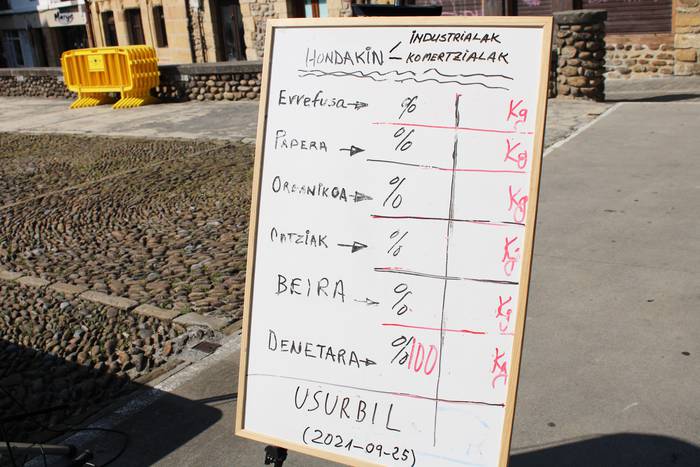 HONDAKIN < INDUSTRIALAK
KOMERTZIALAK
Errefusa → % Kg
PAPERA → % Kg
ORGANIKOA → % Kg
ONTZIAK → % Kg
BEIRA → % Kg
DENETARA → % 100 Kg
USURBIL
(2021-09-25)